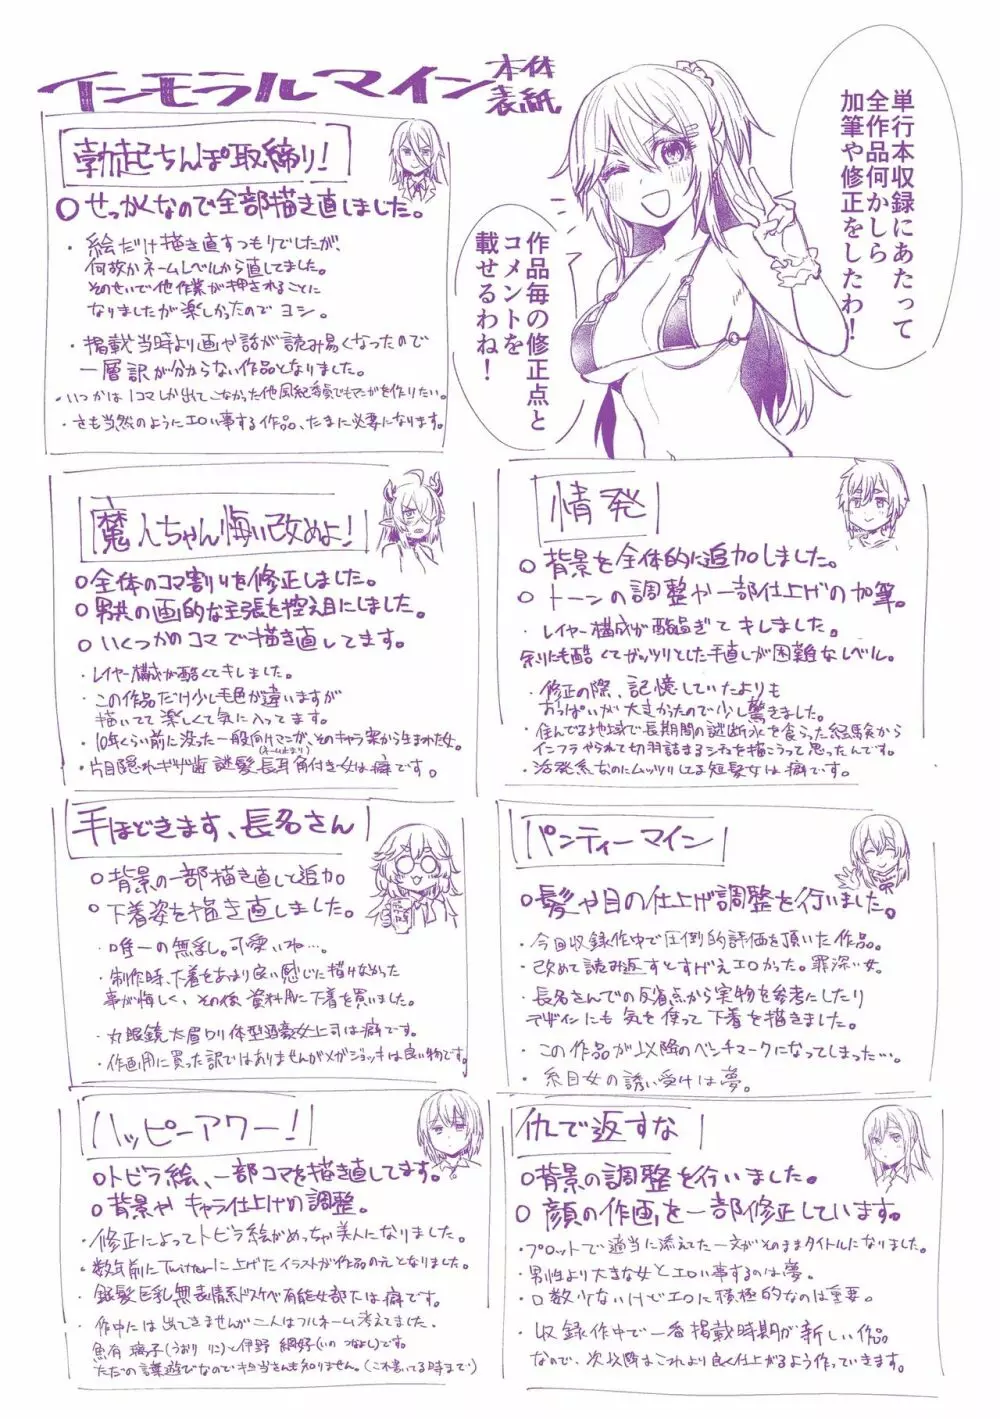 インモラルマイン 本体表紙
単行本収録にあたって
全作品何かしら
加筆や修正をしたわ!
作品毎の修正点と
コメントを
載せるわね!
勃起ちんぽ取締り!
○せっかくなので全部描き直しました。
・絵だけ描き直すつもりでしたが、
何故かネームレベルから直してました。
そのせいで他作業が押されることに
なりましたが楽しかったのでヨシ。
・掲載当時より画や話が読み易くなったので
一層訳が分からない作品となりました。
・いつかは1コマしか出てこなかった他風紀委員でもマンガを作りたい。
・さも当然のようにエロい事する作品、たまに必要になります。
魔人ちゃん悔い改めよ!
○全体のコマ割りを修正しました。
○男共の画的な主張を控え目にしました。
○いくつかのコマで描き直してます。
・レイヤー構成が酷くてキレました。
・この作品だけ少し毛色が違いますが
描いてて楽しくて気に入ってます。
・10年くらい前に没った一般向けマンガ、そのキャラ案から生まれた女。
(ネーム止まり)
・片目隠れギザ歯謎髪長耳角付き女は癖です。
情発
○背景を全体的に追加しました。
○トーンの調整や一部仕上げの加筆。
・レイヤー構成が酷過ぎてキレました。
余りにも酷くてガッツリとした手直しが困難なレベル。
・修正の際、記憶していたよりも
おっぱいが大きかったので少し驚きました。
・住んでる地域で長期間の謎断水を食らった経験から
インフラやられて切羽詰まるシチュを描こうって思ったんです。
・活発系なのにムッツリしてる短髪女は癖です。
手ほどきます、長名さん
○背景の一部描き直しと追加
○下着姿を描き直しました。
・唯一の無乳。可愛いね…。
・制作時、下着をあまり良い感じに描けなかった
事が悔しく、その後資料用に下着を買いました。
・丸眼鏡太眉ロリ体型酒豪女上司は癖です。
・作画用に買った訳ではありませんがメガジョッキは良い物です。
パンティーマイン
○髪や目の仕上げ調整を行いました。
・今回収録作中で圧倒的評価を頂いた作品。
・改めて読み返すとすげえエロかった。罪深い女。
・長名さんでの反省点から実物を参考にしたり
デザインにも気を使って下着を描きました。
・この作品が以降のベンチマークになってしまった…。
・糸目女の誘い受けは夢。
ハッピーアワー!
○トビラ絵、一部コマを描き直してます。
○背景やキャラ仕上げの調整。
・修正によってトビラ絵がめっちゃ美人になりました。
・数年前にTwitterに上げたイラストが作品の元となりました。
・銀髪巨乳無表情系ドスケベ有能女部下は癖です。
・作中には出てきませんが二人はフルネーム考えてました。
魚有 璃子(うおり りこ)と伊野 綱好(いの つなよし)です。
ただの言葉遊びなので担当さんも知りません。(これ書いてる時まで)
仇で返すな
○背景の調整を行いました。
○顔の作画を一部修正しています。
・プロットで適当に添えてた一文がそのままタイトルになりました。
・男性より大きな女とエロい事するのは夢。
・口数少ないけどエロに積極的なのは重要。
・収録作中で一番掲載時期が新しい作品
なので、次以降はこれより良く仕上がるよう作っていきます。